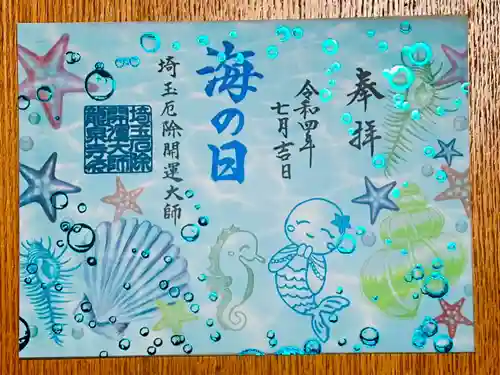 奉拝
令和四年
七月吉日
海の日
埼玉厄除開運大師
埼玉厄除
開運大師
龍泉寺